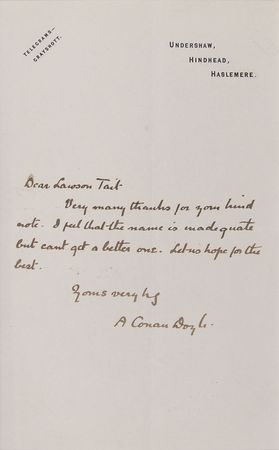 TELEGRAMS—
GRAYSHOTT.
UNDERSHAW,
HINDHEAD,
HASLEMERE.
Dear Lawson Tait
Very many thanks for your kind
note. I feel that the name is inadequate
but cant get a better one. Let us hope for the
best.
Yours very trly
A Conan Doyle.